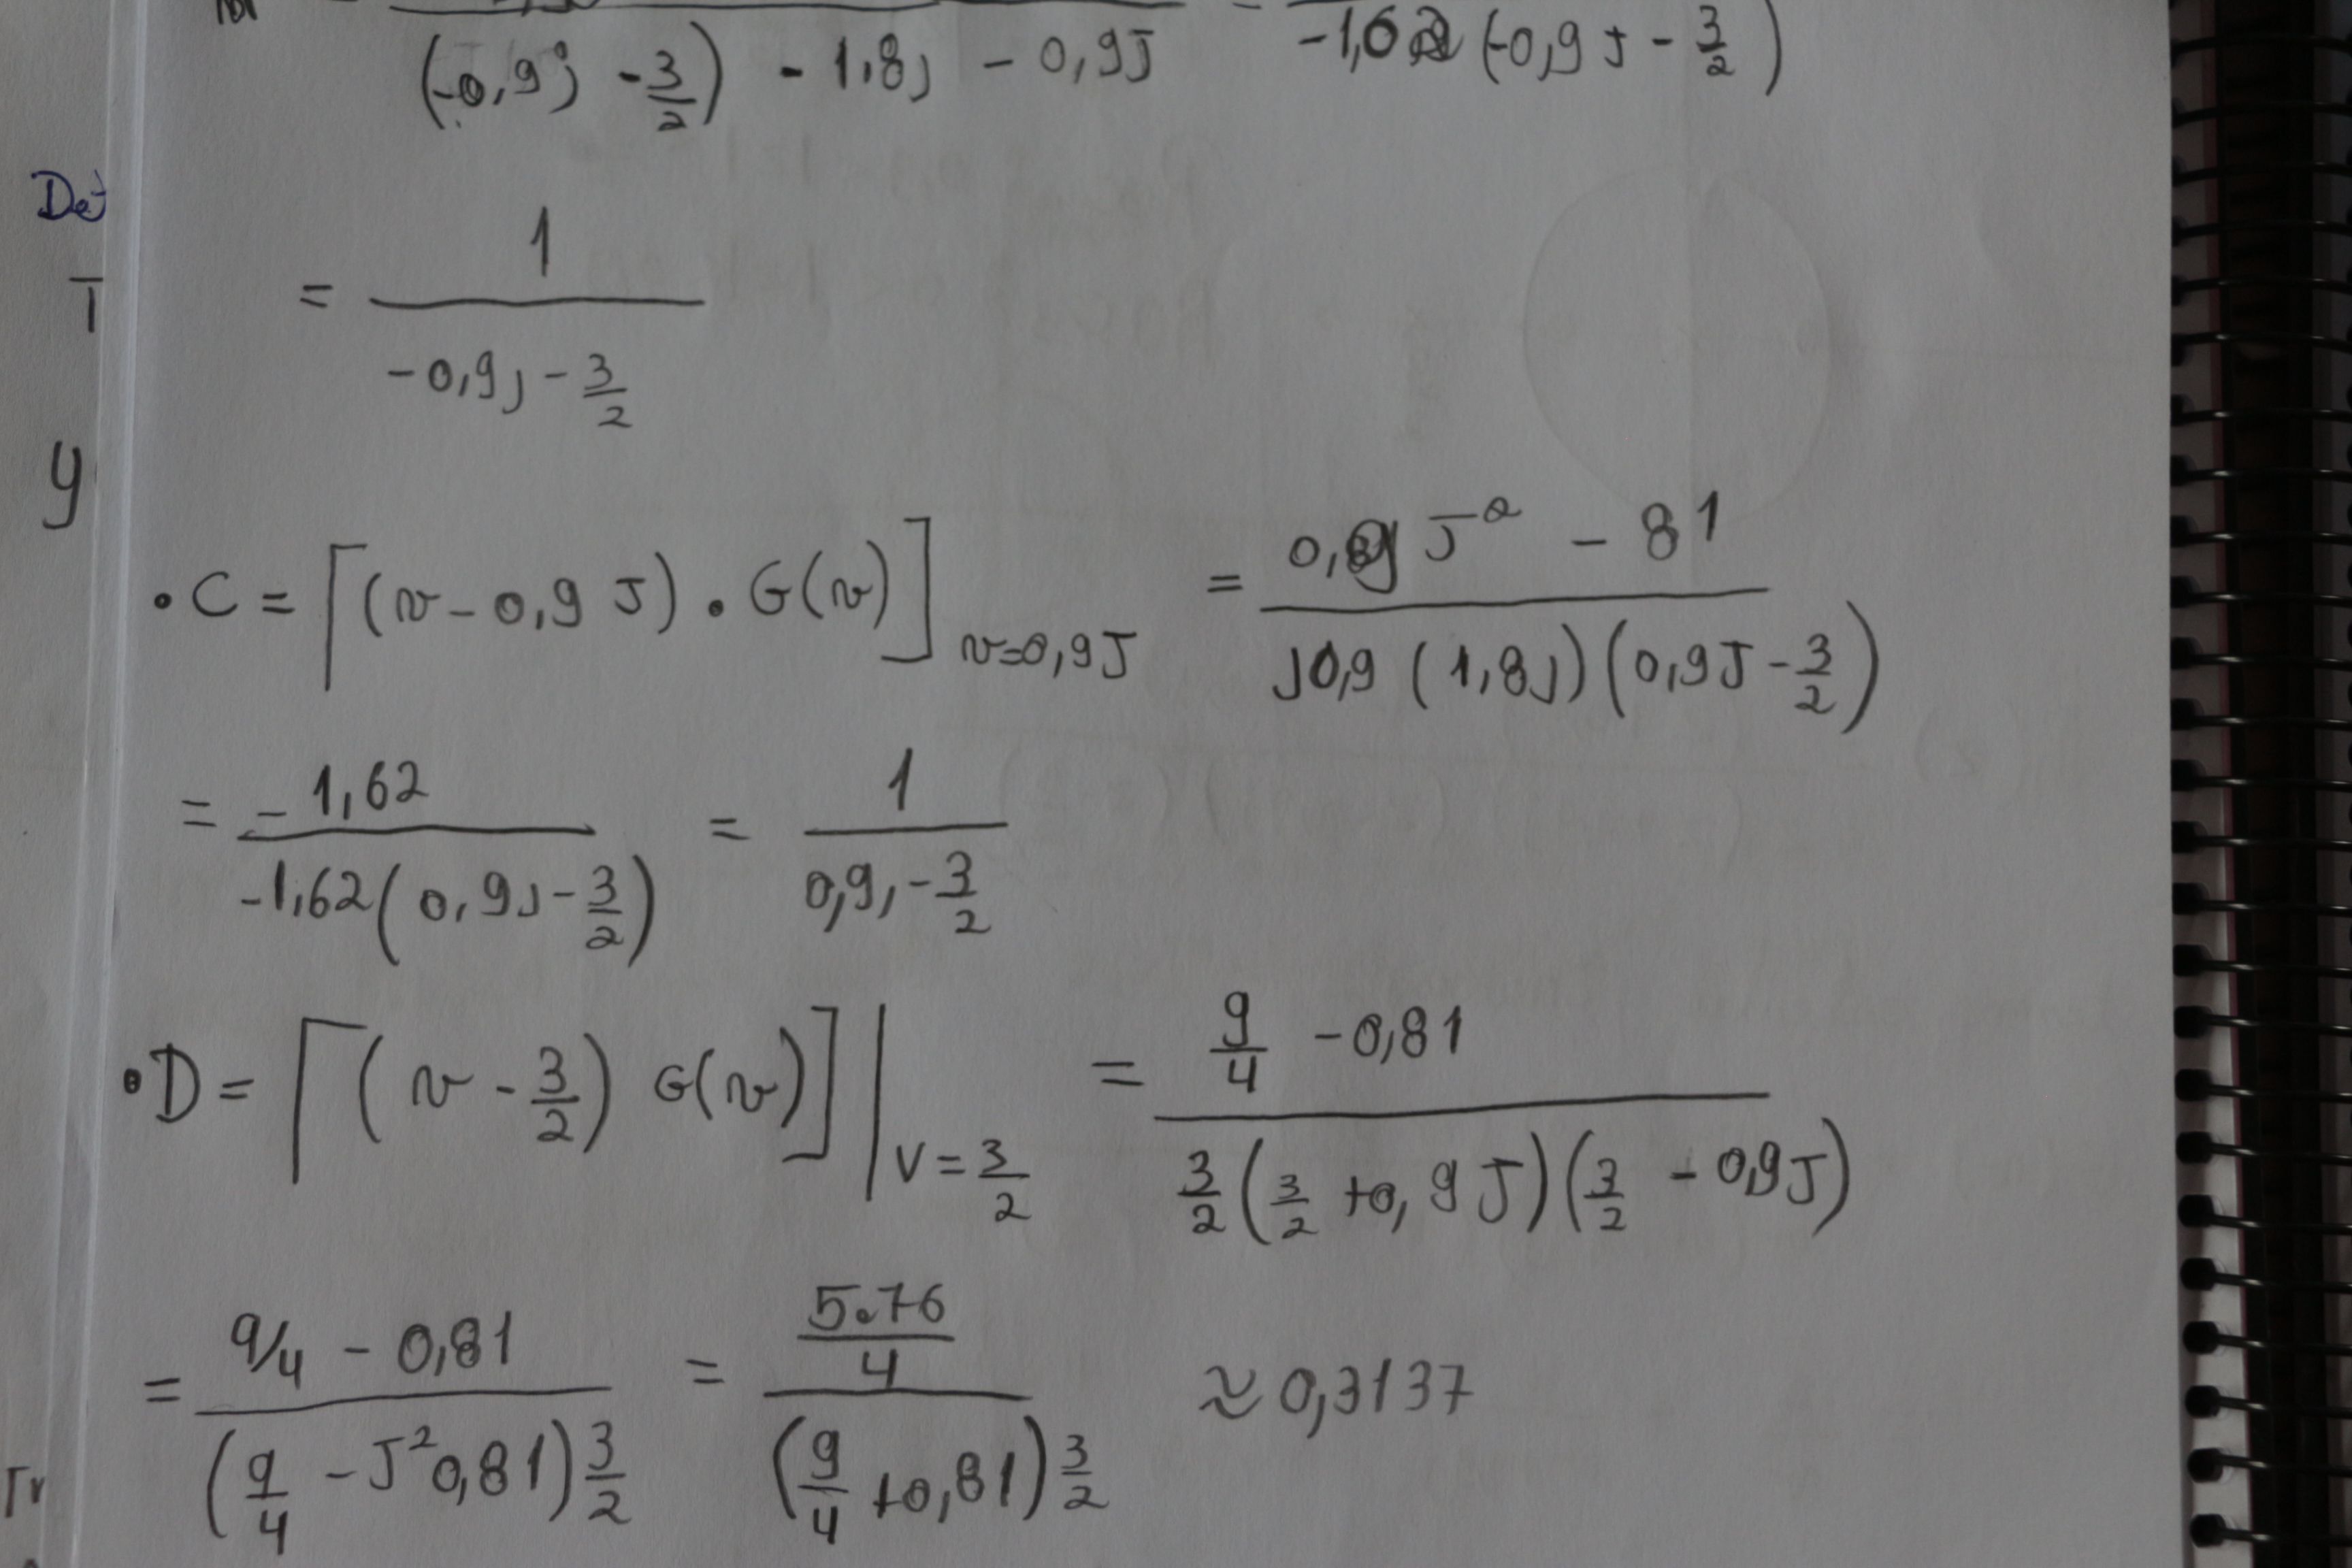 (-0,9j - 3/2) - 1,8j - 0,9J = -1,62 (-0,9J - 3/2)
Det
= 1 / (-0,9j - 3/2)
T
y
• C = [(v - 0,9 J) • G(v)] v=0,9J = (0,9J² - 81) / (J0,9 (1,8j)(0,9J - 3/2))
= -1,62 / (-1,62(0,9j - 3/2)) = 1 / (0,9j - 3/2)
• D = [(v - 3/2) G(v)] | V = 3/2 = (9/4 - 0,81) / (3/2 (3/2 + 0,9J)(3/2 - 0,9J))
= (9/4 - 0,81) / ((9/4 - J²0,81) 3/2) = (5.76/4) / ((9/4 + 0,81) 3/2) ≈ 0,3137
Tr